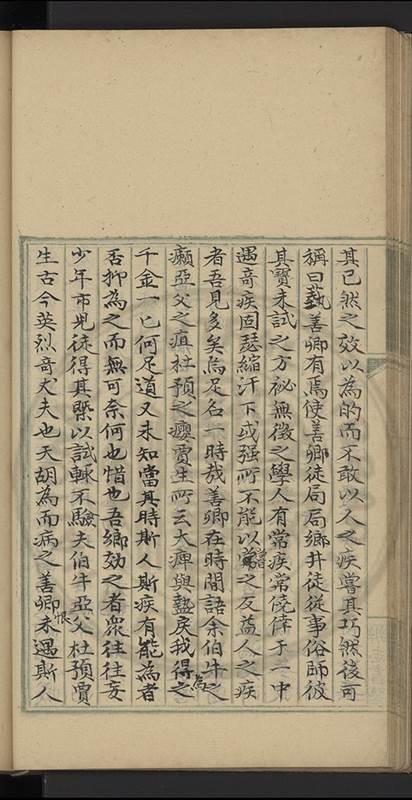 其已然之效以為的而不敢以人之疾嘗其巧然後可
稱曰藝善卿有焉使善卿徒局局鄉井徒從事俗師彼
其寶未試之方祕無徵之學人有常疾常僥倖于一中
遇奇疾固瑟縮汗下或强所不能以嘗之反益人之疾
者吾見多矣烏足名一時哉善卿在時間語余伯牛之
癩亞父之疽杜預之癭賈生所云大痺與盭戾我得為之
千金一匕何足道又未知當其時斯人斯疾有能為者
否抑為之而無可奈何也惜也吾鄉効之者衆往往妄
少年市児徒得其槩以試輒不驗夫伯牛亞父杜預賈
生古今英烈奇丈夫也天胡為而病之善卿恨未遇斯人